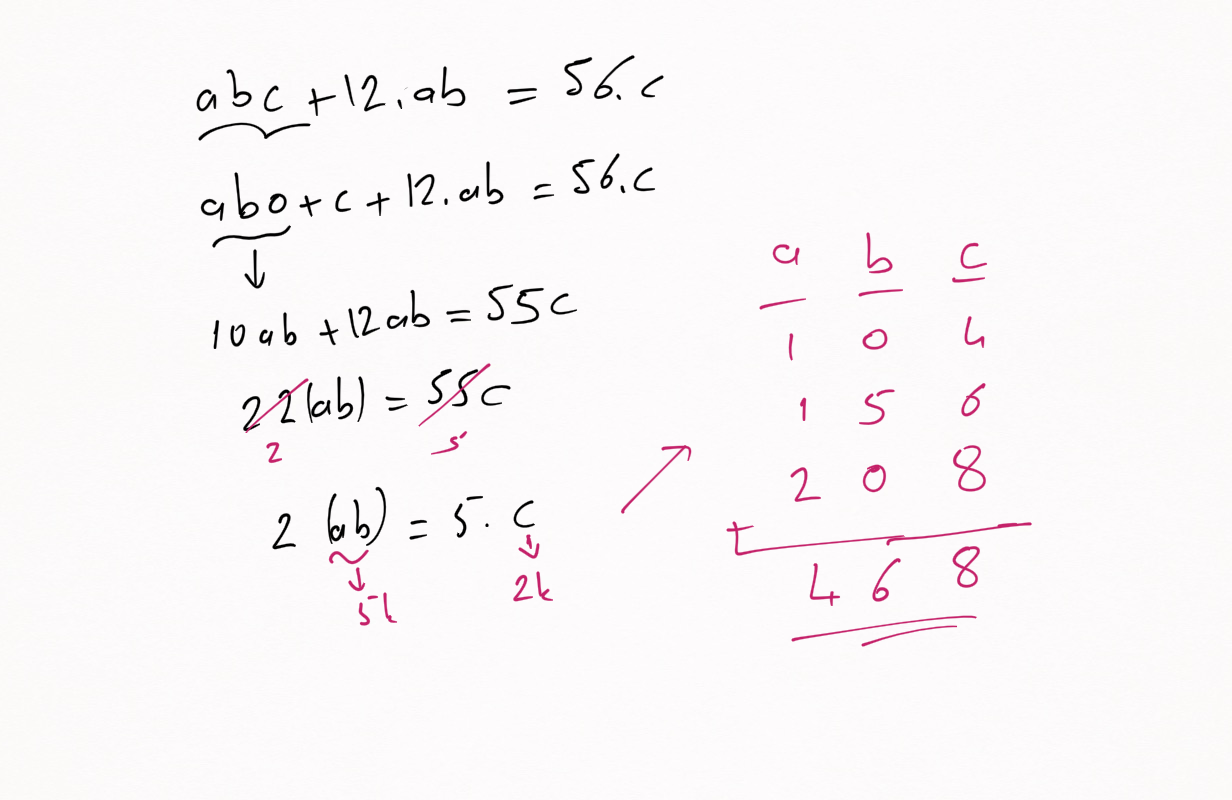 abc + 12.ab = 56.c
ab0 + c + 12.ab = 56.c
↓
10ab + 12ab = 55c
22(ab) = 55c
2 5
2 (ab) = 5. c
↓ ↓
5k 2k
a b c
1 0 4
1 5 6
2 0 8
+
4 6 8